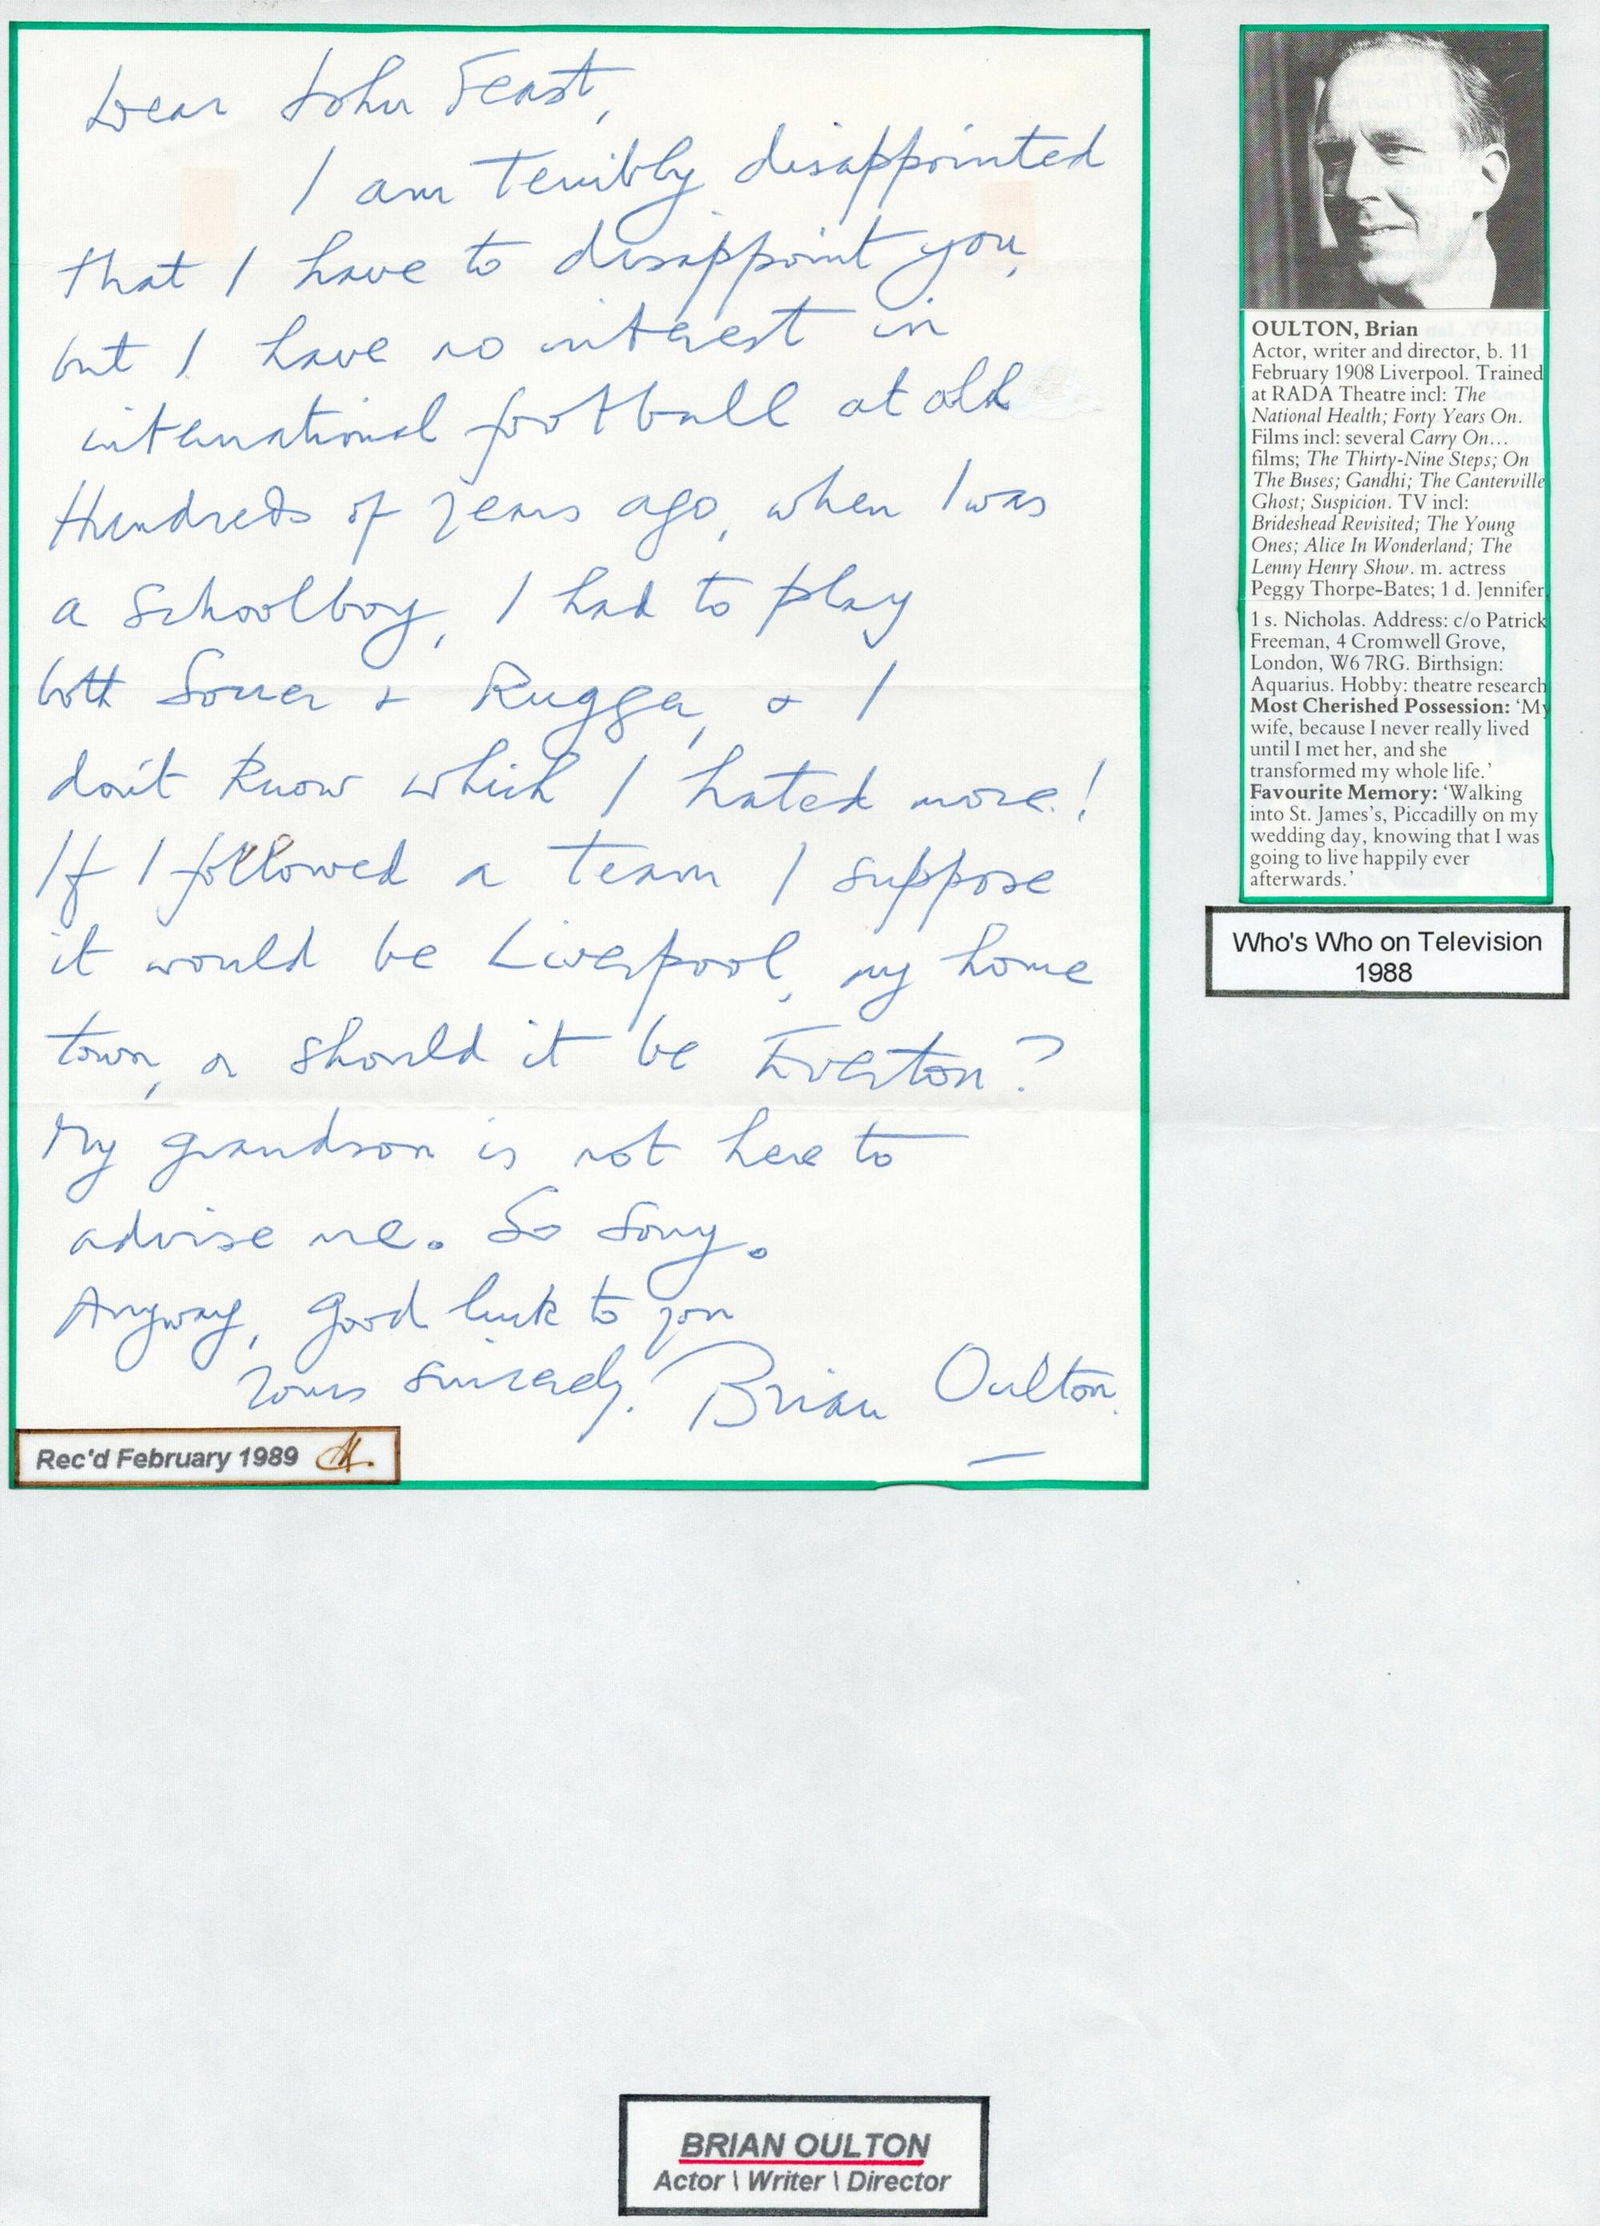 Dear John Feast,
I am terribly disappointed
that I have to disappoint you,
but I have no interest in
international football at all
Hundreds of years ago, when I was
a schoolboy, I had to play
both Soccer & Rugger, & I
don't know which I hated more!
If I followed a team I suppose
it would be Liverpool, my home
town, or should it be Everton?
My grandson is not here to
advise me. So sorry.
Anyway, good luck to you
Yours sincerely, Brian Oulton.
Rec'd February 1989
OULTON, Brian
Actor, writer and director, b. 11
February 1908 Liverpool. Trained
at RADA Theatre incl: The
National Health; Forty Years On.
Films incl: several Carry On...
films; The Thirty-Nine Steps; On
The Buses; Gandhi; The Canterville
Ghost; Suspicion. TV incl:
Brideshead Revisited; The Young
Ones; Alice In Wonderland; The
Lenny Henry Show. m. actress
Peggy Thorpe-Bates; 1 d. Jennifer,
1 s. Nicholas. Address: c/o Patrick
Freeman, 4 Cromwell Grove,
London, W6 7RG. Birthsign:
Aquarius. Hobby: theatre research
Most Cherished Possession: ‘My
wife, because I never really lived
until I met her, and she
transformed my whole life.’
Favourite Memory: ‘Walking
into St. James's, Piccadilly on my
wedding day, knowing that I was
going to live happily ever
afterwards.’
Who's Who on Television
1988
BRIAN OULTON
Actor \ Writer \ Director